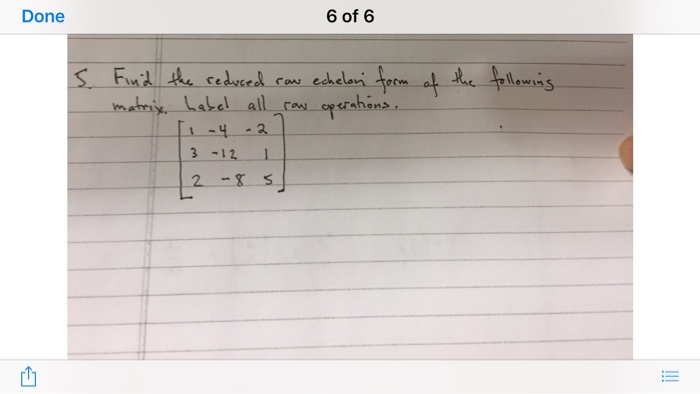 Done
6 of 6
5. Find the reduced row echelon form of the following
matrix. Label all row operations.
1 -4 -2
3 -12 1
2 -8 5